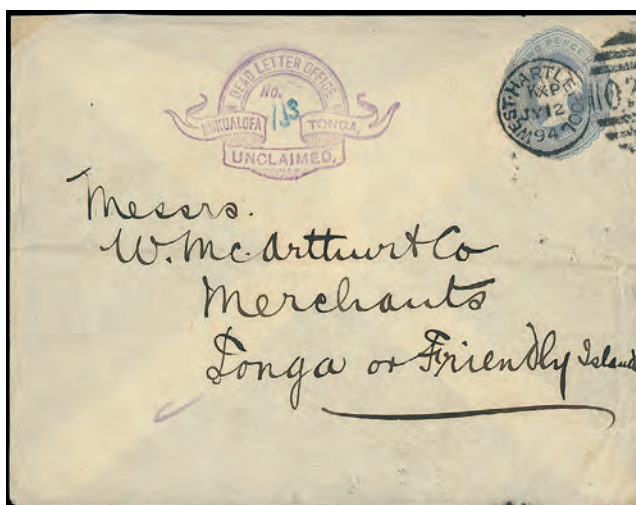 DEAD LETTER OFFICE
No.
NUKUALOFA TONGA,
UNCLAIMED.
WEST-HARTLEPOOL
JY 12
94
Messrs.
W. McArthur & Co
Merchants
Tonga or Friendly Island